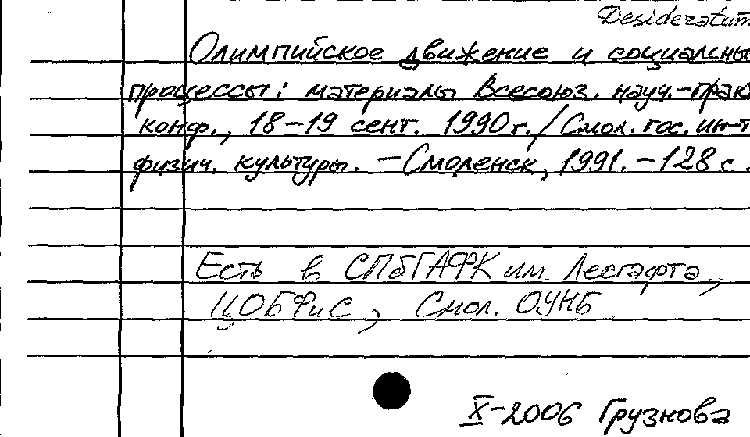 Desideratum
Олимпийское движение и социальны
процессы: материалы Всесоюз. науч.-прак
конф., 18-19 сент. 1990 г. / Смол. гос. ин-т
физич. культуры. - Смоленск, 1991. - 128 с.
Есть в СПбГАФК им. Лесгафта,
ЦОБФиС, Смол. ОУНБ
X-2006 Грузнова